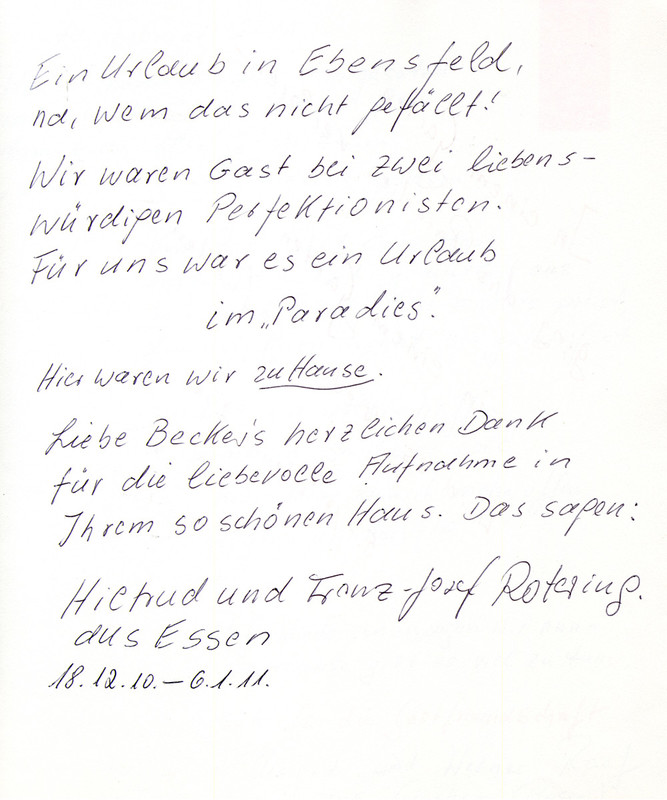 Ein Urlaub in Ebensfeld,
na, wem das nicht gefällt!
Wir waren Gast bei zwei liebens-
würdigen Perfektionisten.
Für uns war es ein Urlaub
im „Paradies".
Hier waren wir zuHause.
Liebe Becker's herzlichen Dank
für die liebevolle Aufnahme in
Ihrem so schönen Haus. Das sagen:
Hiltrud und Franz-Josef Rotering.
aus Essen
18.12.10. – 6.1.11.